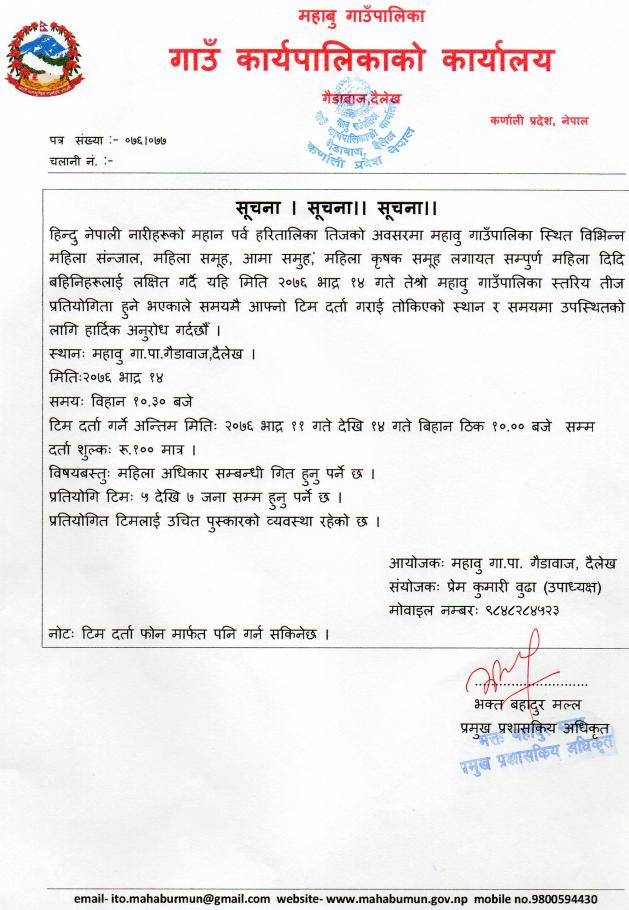 महाबु गाउँपालिका
गाउँ कार्यपालिकाको कार्यालय
गैडाबाज,दैलेख
कर्णाली प्रदेश, नेपाल
महाबु गाउँपालिका
गाउँ कार्यपालिकाको कार्यालय
गैडाबाज, दैलेख
कर्णाली प्रदेश नेपाल
पत्र संख्या :- ०७६।०७७
चलानी नं. :-
सूचना । सूचना।। सूचना।।
हिन्दु नेपाली नारीहरूको महान पर्व हरितालिका तिजको अवसरमा महावु गाउँपालिका स्थित विभिन्न
महिला संन्जाल, महिला समूह, आमा समुह, महिला कृषक समूह लगायत सम्पुर्ण महिला दिदि
बहिनिहरूलाई लक्षित गर्दै यहि मिति २०७६ भाद्र १४ गते तेश्रो महावु गाउँपालिका स्तरिय तीज
प्रतियोगिता हुने भएकाले समयमै आफ्नो टिम दर्ता गराई तोकिएको स्थान र समयमा उपस्थितको
लागि हार्दिक अनुरोध गर्दछौँ ।
स्थानः महावु गा.पा.गैडावाज,दैलेख ।
मितिः२०७६ भाद्र १४
समयः विहान १०.३० बजे
टिम दर्ता गर्ने अन्तिम मितिः २०७६ भाद्र ११ गते देखि १४ गते बिहान ठिक १०.०० बजे सम्म
दर्ता शुल्कः रू.१०० मात्र ।
विषयबस्तुः महिला अधिकार सम्बन्धी गित हुनु पर्ने छ ।
प्रतियोगि टिमः ५ देखि ७ जना सम्म हुनु पर्ने छ ।
प्रतियोगित टिमलाई उचित पुस्कारको व्यवस्था रहेको छ ।
आयोजकः महावु गा.पा. गैडावाज, दैलेख
संयोजकः प्रेम कुमारी वुढा (उपाध्यक्ष)
मोवाइल नम्बरः ९८४८२८४५२३
नोटः टिम दर्ता फोन मार्फत पनि गर्न सकिनेछ ।
भक्त बहादुर मल्ल
प्रमुख प्रशासकिय अधिकृत
भक्त बहादुर मल्ल
प्रमुख प्रशासकिय अधिकृत
email- ito.mahaburmun@gmail.com website- www.mahabumun.gov.np mobile no.9800594430